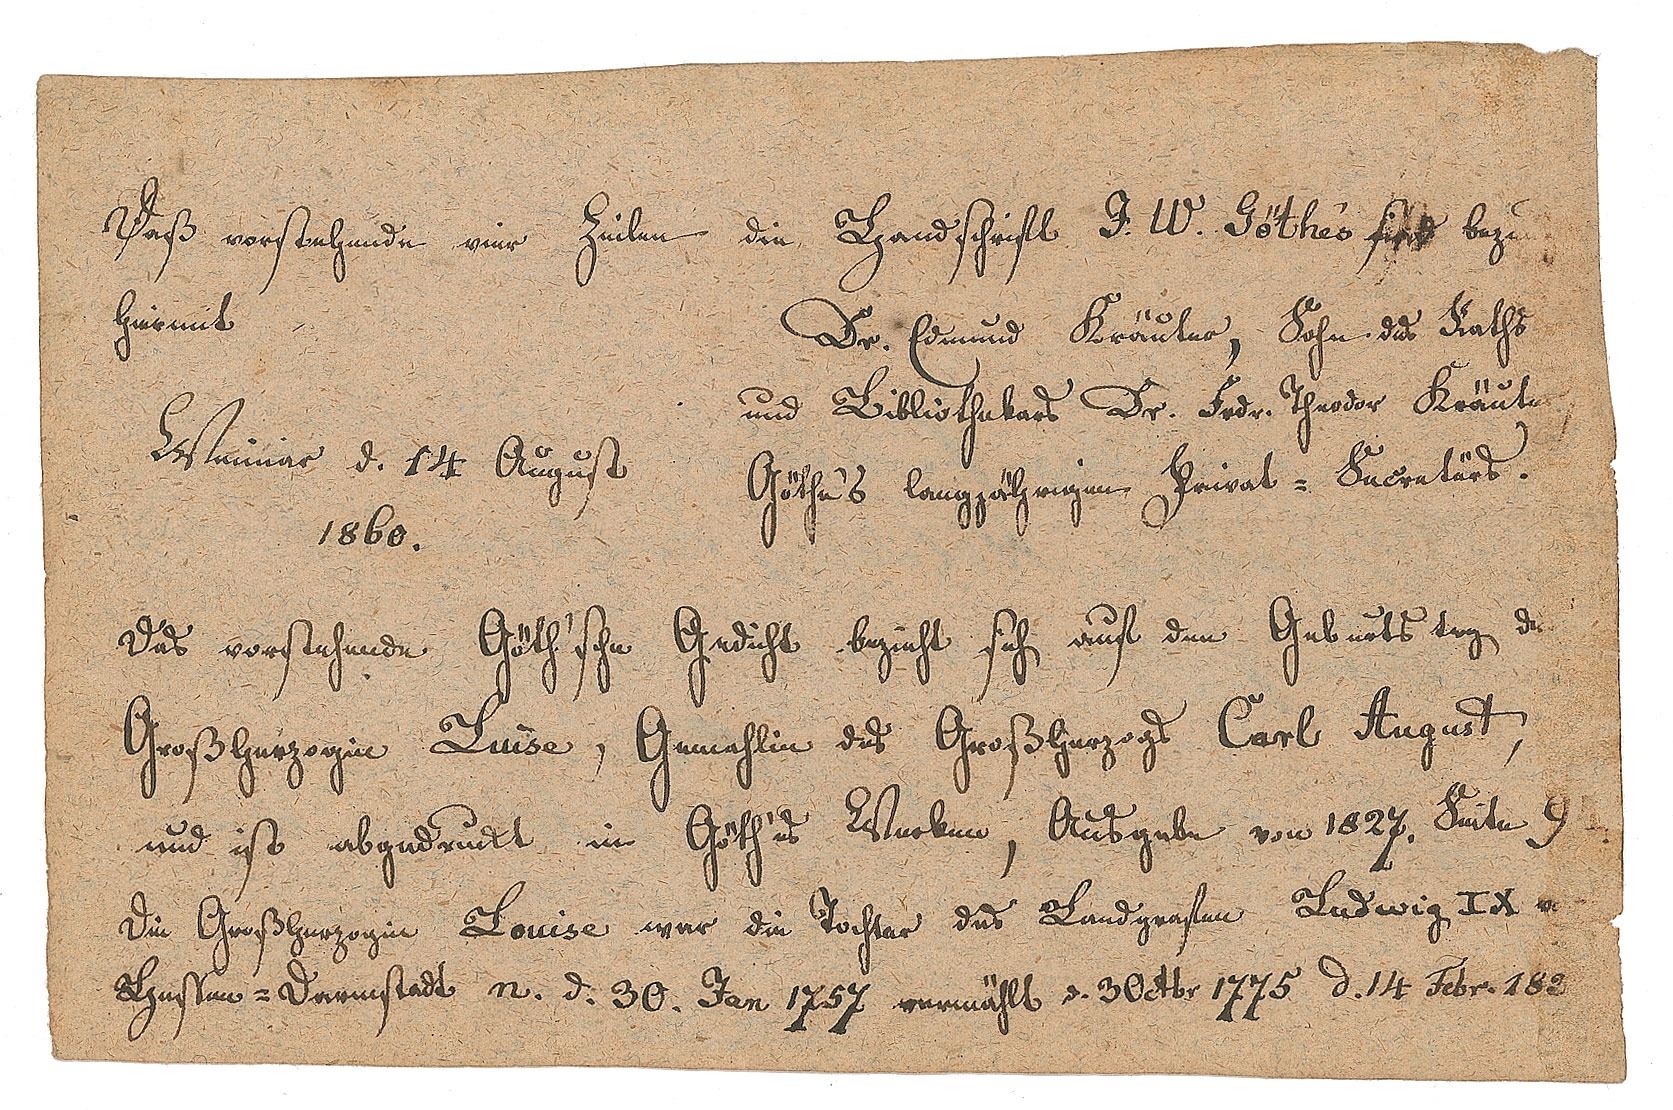 Daß vorstehende vier Zeilen die Handschrift J. W. Göthes sind
hiermit
Dr. Edmund Kräuter, Sohn des Raths
und Bibliothekars Dr. Frdr. Theodor Kräute
Weimar d. 14 August
Göthe's langjährigen Privat = Secretärs.
1860.
Das vorstehende Göth'sche Gedicht bezieht sich auf den Geburtstag de
Großherzogin Luise, Gemahlin des Großherzogs Carl August,
und ist abgedruckt in Göth'es Werken, Ausgabe von 1827. Seite 9
Die Großherzogin Louise war die Tochter des Landgrafen Ludwig IX v
Hessen = Darmstadt n. d. 30. Jan 1757 vermählt d. 3 Octbr 1775 d. 14 Febr. 183